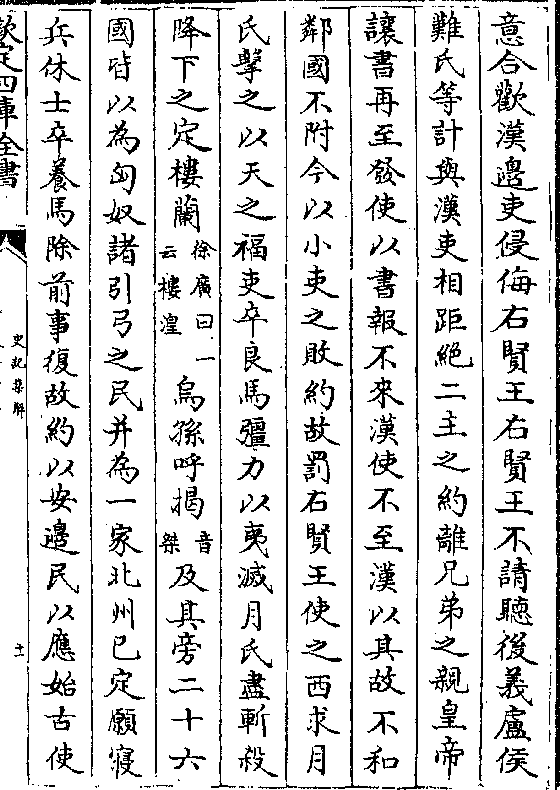 意合歡漢邊吏侵侮右賢王右賢王不請聽後義盧侯
難氏等計與漢吏相距絕二主之約離兄弟之親皇帝
讓書再至發使以書報不來漢使不至漢以其故不和
鄰國不附今以小吏之敗約故罰右賢王使之西求月
氏擊之以天之福吏卒良馬彊力以夷滅月氏盡斬殺
降下之定樓蘭徐廣曰一云樓湟烏孫呼揭音桀及其旁二十六
國皆以為匈奴諸引弓之民并為一家北州已定願寢
兵休士卒養馬除前事復故約以安邊民以應始古使
欽定四庫全書
史記集解
十一